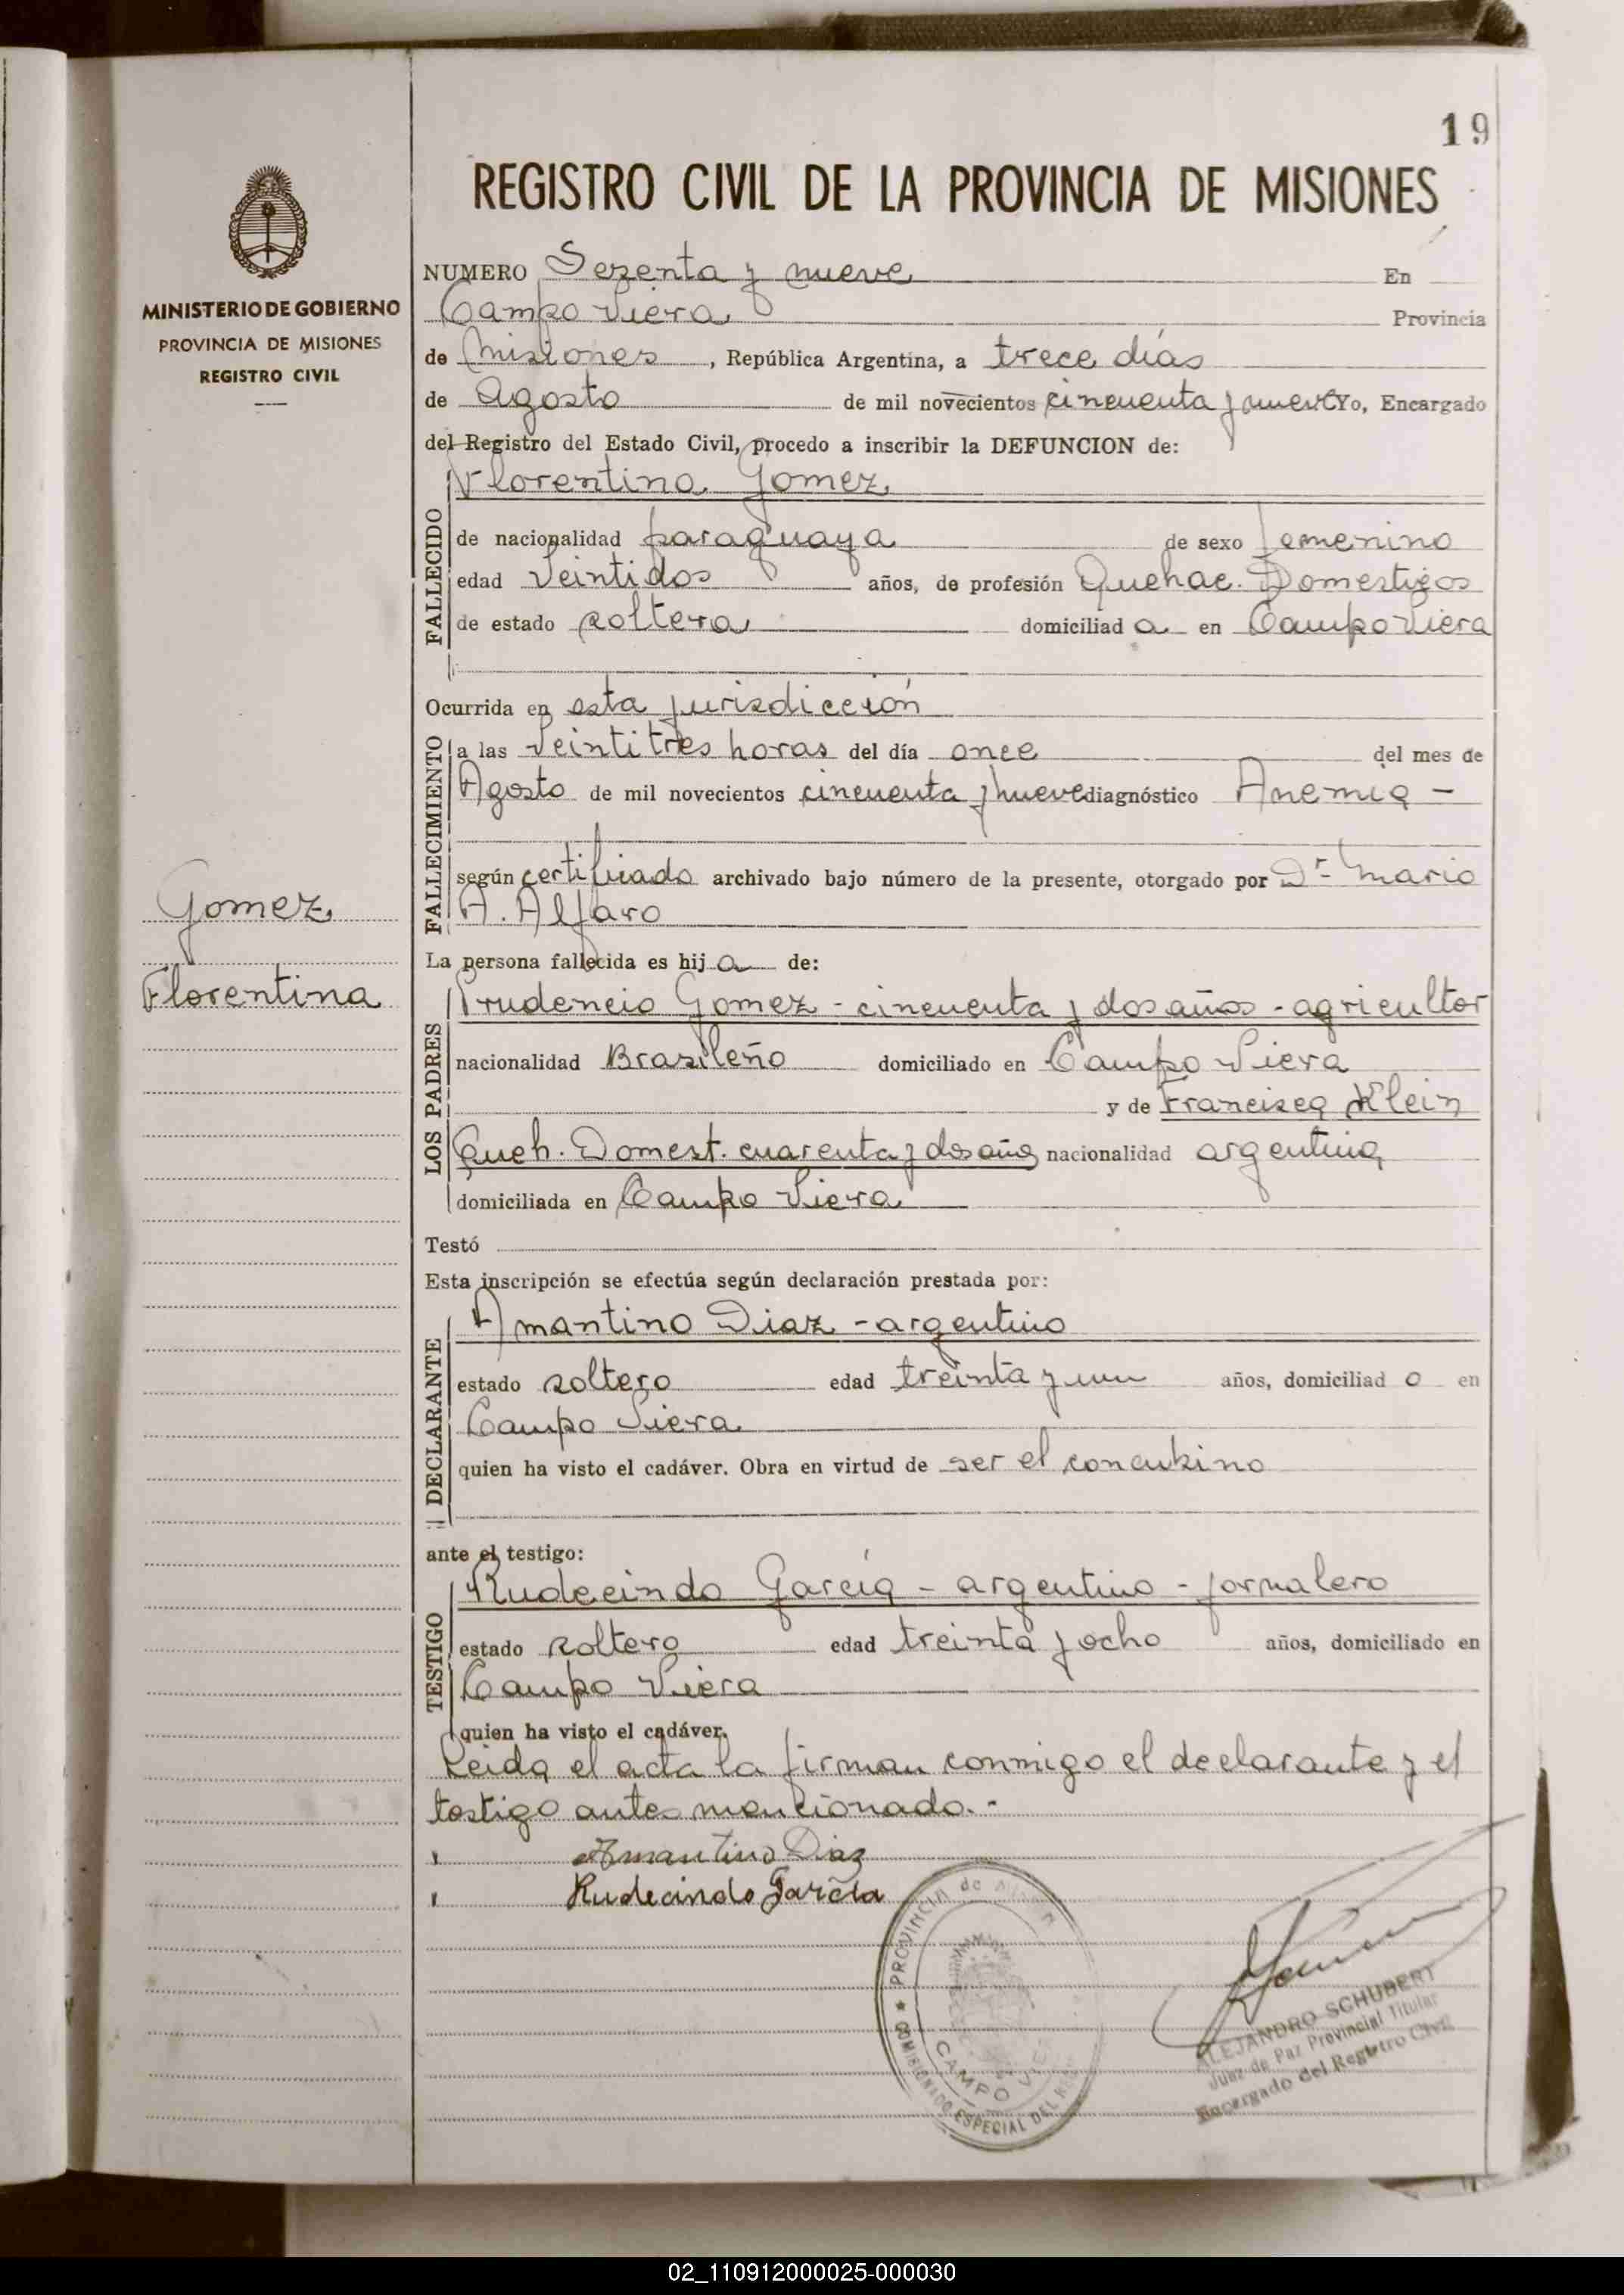 19
REGISTRO CIVIL DE LA PROVINCIA DE MISIONES
MINISTERIO DE GOBIERNO
PROVINCIA DE MISIONES
REGISTRO CIVIL
Gomez
Florentina
NUMERO Sezenta y nueve En
Campo Viera Provincia
de Misiones, República Argentina, a trece días
de Agosto de mil novecientos cincuenta y nueve Yo, Encargado
del Registro del Estado Civil, procedo a inscribir la DEFUNCION de:
Florentina Gomez
FALLECIDO
de nacionalidad paraguaya de sexo femenino
edad Veintidos años, de profesión Quehac. Domesticos
de estado soltera domiciliad a en Campo Viera
Ocurrida en esta jurisdiccion
FALLECIMIENTO
a las Veintitres horas del día once del mes de
Agosto de mil novecientos cincuenta y nueve diagnóstico Anemia -
según certificado archivado bajo número de la presente, otorgado por Dr. Mario
A. Alfaro
La persona fallecida es hij a de:
LOS PADRES
Prudencio Gomez - cincuenta y dos años - agricultor
nacionalidad Brasileño domiciliado en Campo Viera
y de Francisca Klein
Queh. Domest. cuarenta y dos años nacionalidad argentina
domiciliada en Campo Viera
Testó
Esta inscripción se efectúa según declaración prestada por:
DECLARANTE
Amantino Diaz - argentino
estado soltero edad treinta y un años, domiciliad o en
Campo Viera
quien ha visto el cadáver. Obra en virtud de ser el concubino
ante el testigo:
TESTIGO
Rudecindo García - argentino - jornalero
estado soltero edad treinta y ocho años, domiciliado en
Campo Viera
quien ha visto el cadáver.
Leida el acta la firman conmigo el declarante y el
testigo antes mencionado.-
Amantino Diaz
Rudecindo García
PROVINCIA de
CAMPO VIERA
COMISIONADO ESPECIAL DEL
ALEJANDRO SCHUBERT
Juez de Paz Provincial Titular
Encargado del Registro Civil
02_110912000025-000030